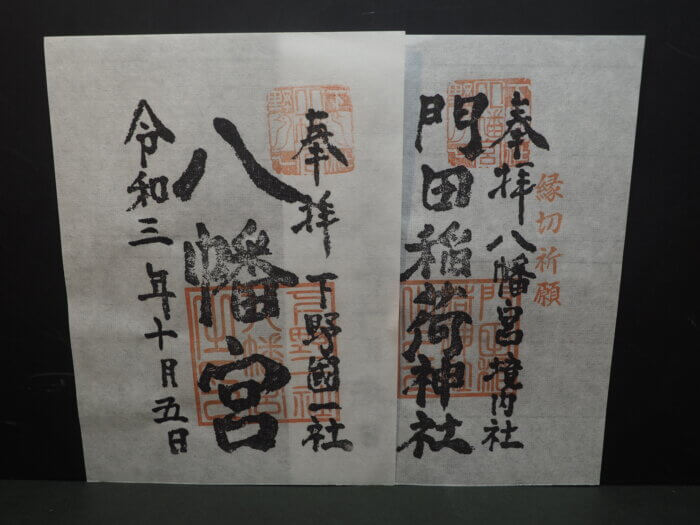 縁切祈願
奉拝 八幡宮境内社
門田稲荷神社
奉拝 下野國一社
八幡宮
令和三年十月五日